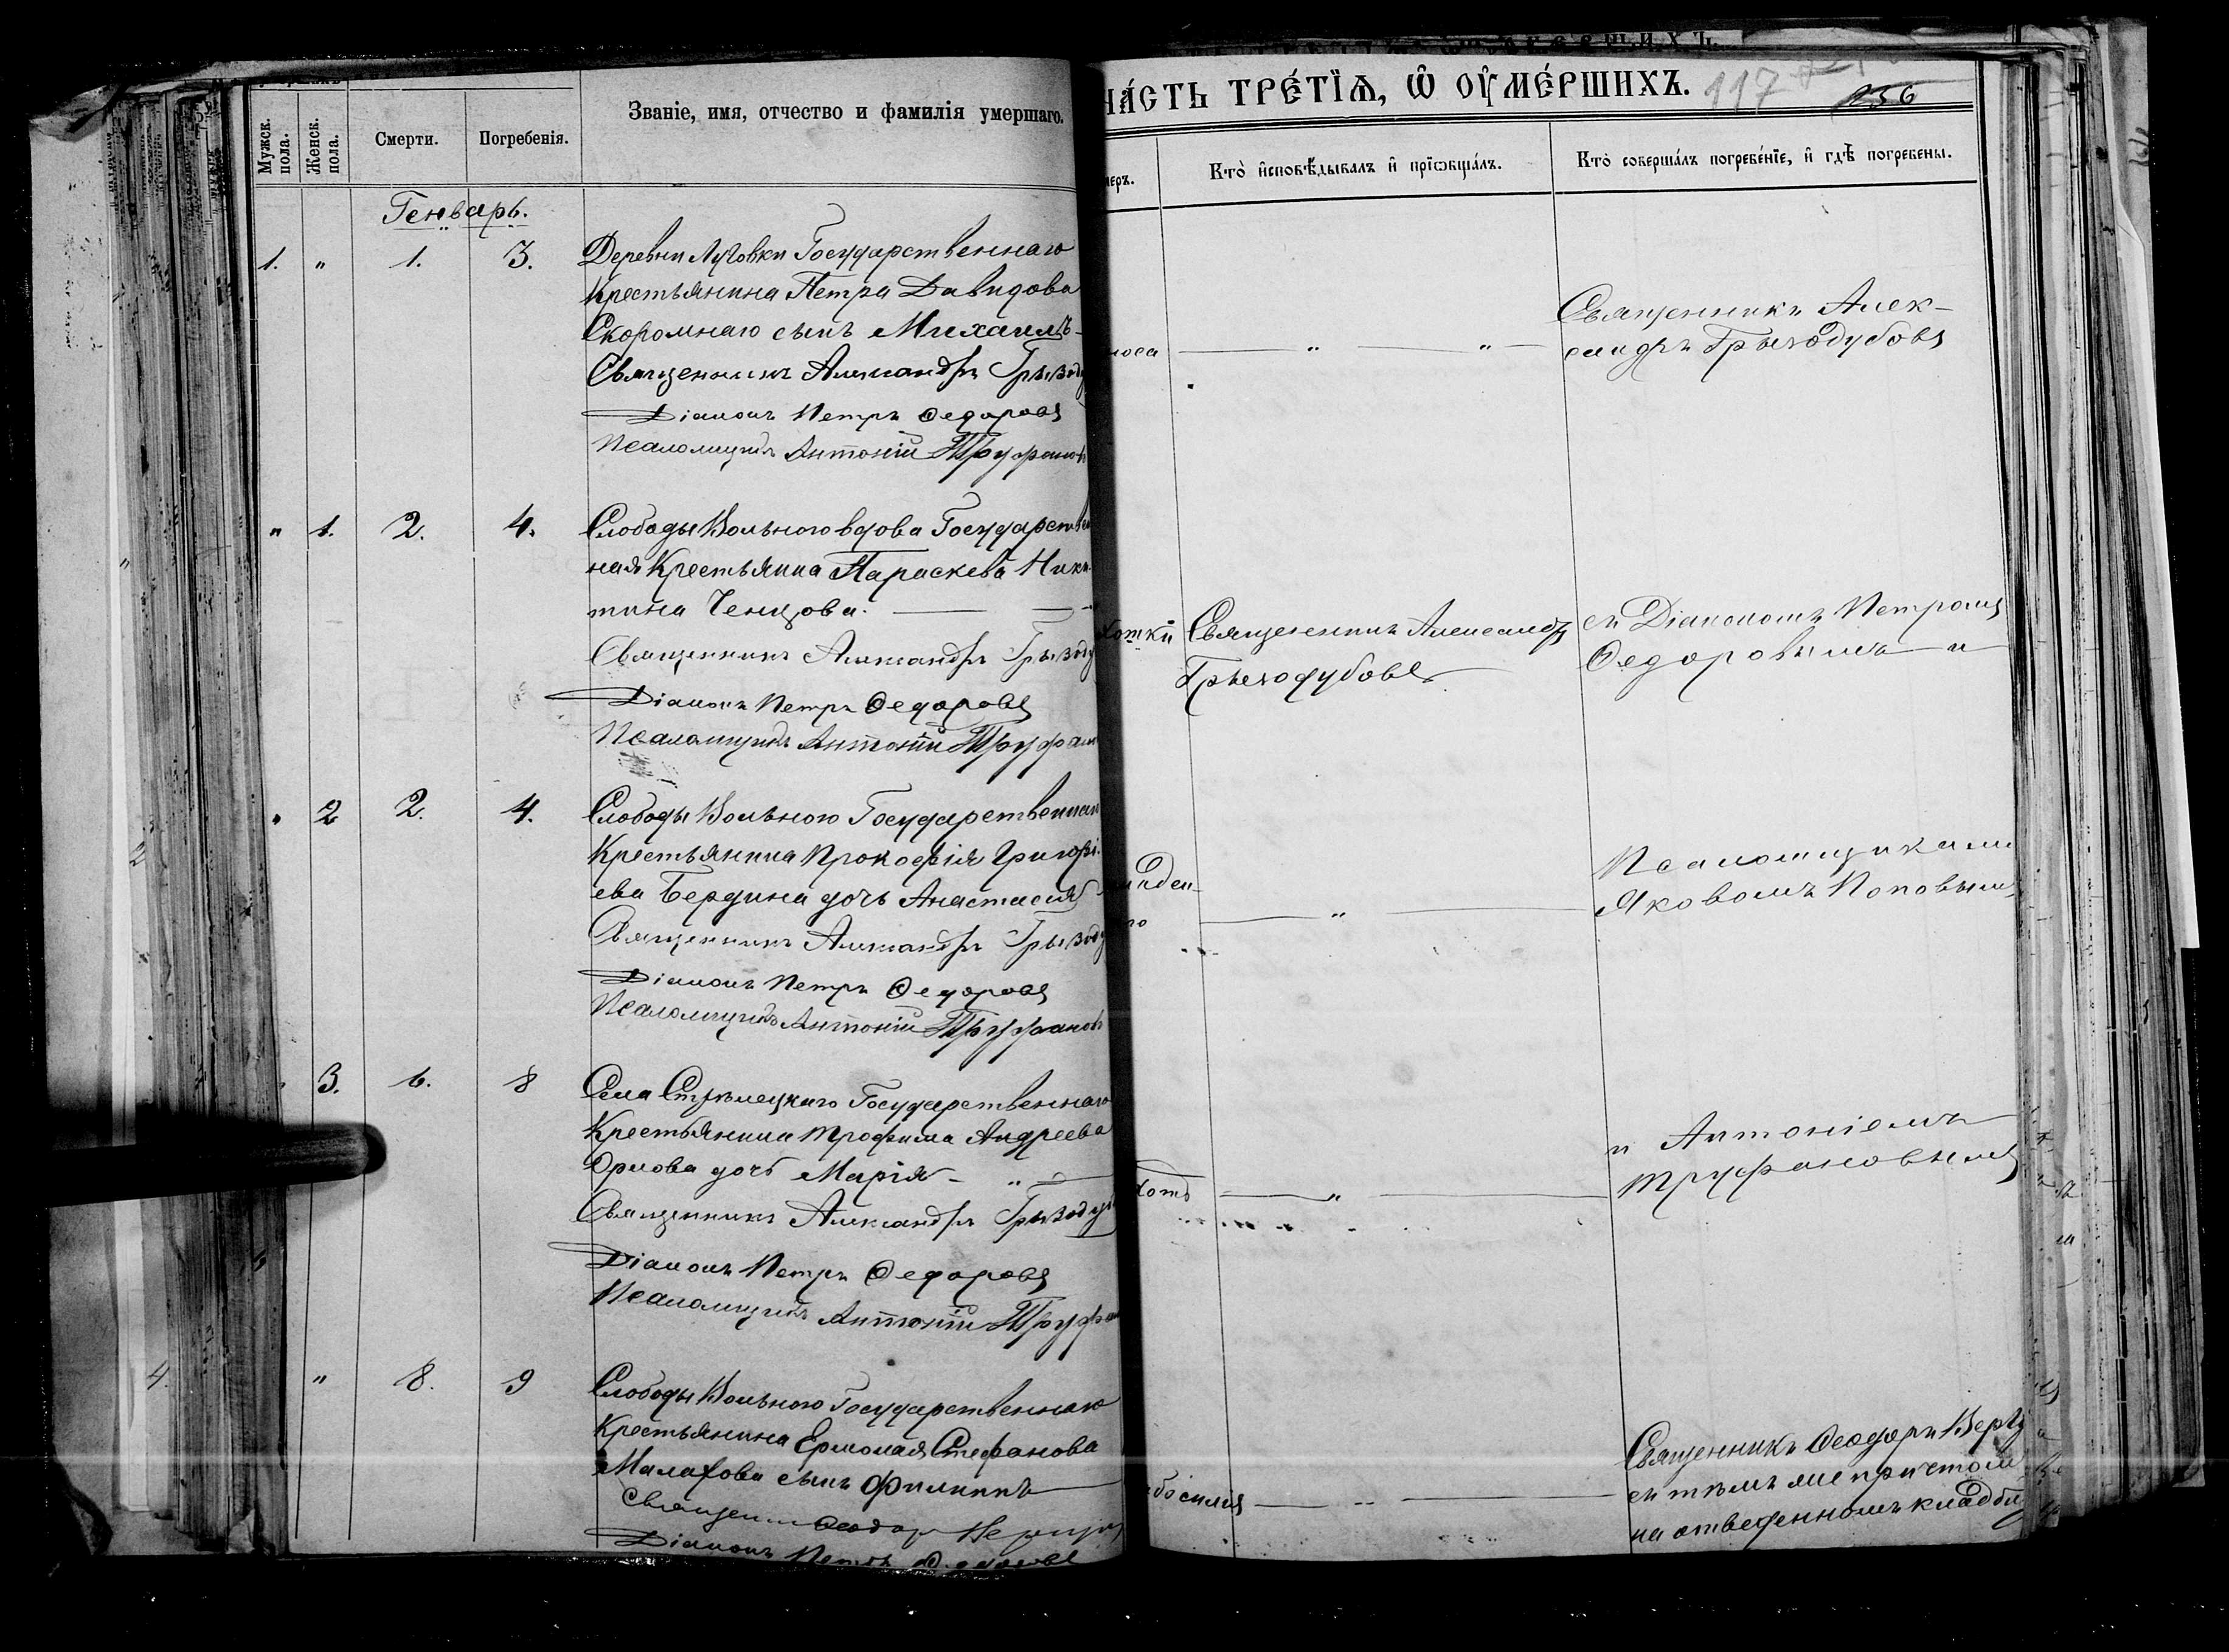 Мужск. пола.
Женск. пола.
Смерти.
Погребенія.
Званіе, имя, отчество и фамилія умершаго.
Генварь.
1. " 1. 3.
Деревни Луговки Государственнаго
Крестьянина Петра Давидова
Скоромнаго сынъ Михаилъ
Священникъ Александръ
Діаконъ Петръ Ѳедоровъ
Псаломщикъ Антоній Труфановъ
" 1. 2. 4.
Слободы Вольного вдова Государствен
ная Крестьянка Параскева Ники
тина Ченцова.
Священникъ Александръ
Діаконъ Петръ Ѳедоровъ
Псаломщикъ Антоній
" 2 2. 4.
Слободы Вольного Государственнаго
Крестьянина Прокофія Григорі
ева Бердина дочь Анастасія
Священникъ Александръ
Діаконъ Петръ Ѳедоровъ
Псаломщикъ Антоній Труфановъ
3. 6. 8
Села Стрѣлецкаго Государственнаго
Крестьянина Трофима Андреева
Орлова дочь Марія
Священникъ Александръ
Діаконъ Петръ Ѳедоровъ
Псаломщикъ Антоній
" 8. 9
Слободы Вольного Государственнаго
Крестьянина Ермолая Стефанова
Малахова сынъ Филиппъ
Діаконъ Петръ
ЧА́СТЬ ТРЕ́ТІѦ, Ѡ ОУМЕ́РШИХЪ.
117
236
меръ.
Кто̀ и҆сповѣ́дывалъ и҆ прїѡбща́лъ.
Кто̀ соверша́лъ погребе́нїе, и҆ гдѣ̀ погребены.
Священникъ Алек-
сандръ Грызодубовъ
Священникъ Александръ
Грызодубовъ
съ Діакономъ Петромъ
Ѳедоровымъ и
Псаломщиками
Яковомъ Поповымъ
и Антоніемъ
Труфановымъ
Священникъ Ѳеодоръ
съ тѣмъ же причтомъ
на отведенномъ кладби